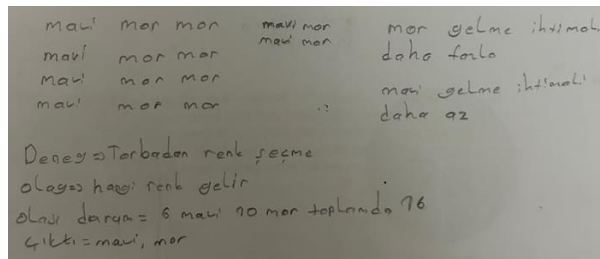 mavi mor mor
mavi mor mor
mavi mor mor
mavi mor mor
mavi mor
mavi mor
mor gelme ihtimali
daha fazla
mavi gelme ihtimali
daha az
Deney⇒Torbadan renk seçme
olay⇒hangi renk gelir
olası durum = 6 mavi 10 mor toplamda 16
Çıktı = mavi, mor